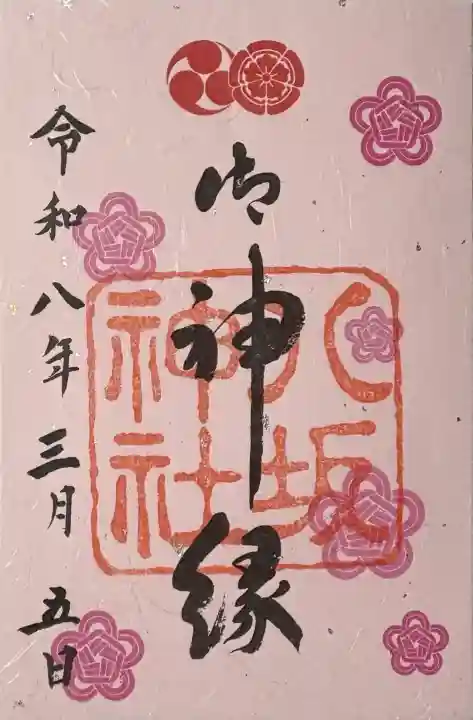 御神縁
八坂神社
令和八年三月五日